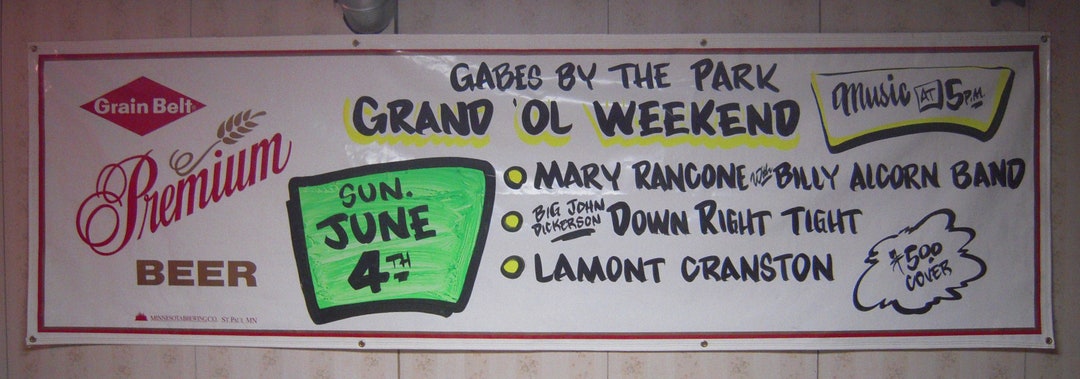 Grain Belt
Premium
BEER
MINNESOTA BREWING CO. ST. PAUL, MN
GABES BY THE PARK
GRAND 'OL WEEKEND
Music AT 5 P.M.
SUN.
JUNE
4TH
MARY RANCONE with BILLY ALCORN BAND
BIG JOHN DICKERSON DOWN RIGHT TIGHT
LAMONT CRANSTON
$500
COVER